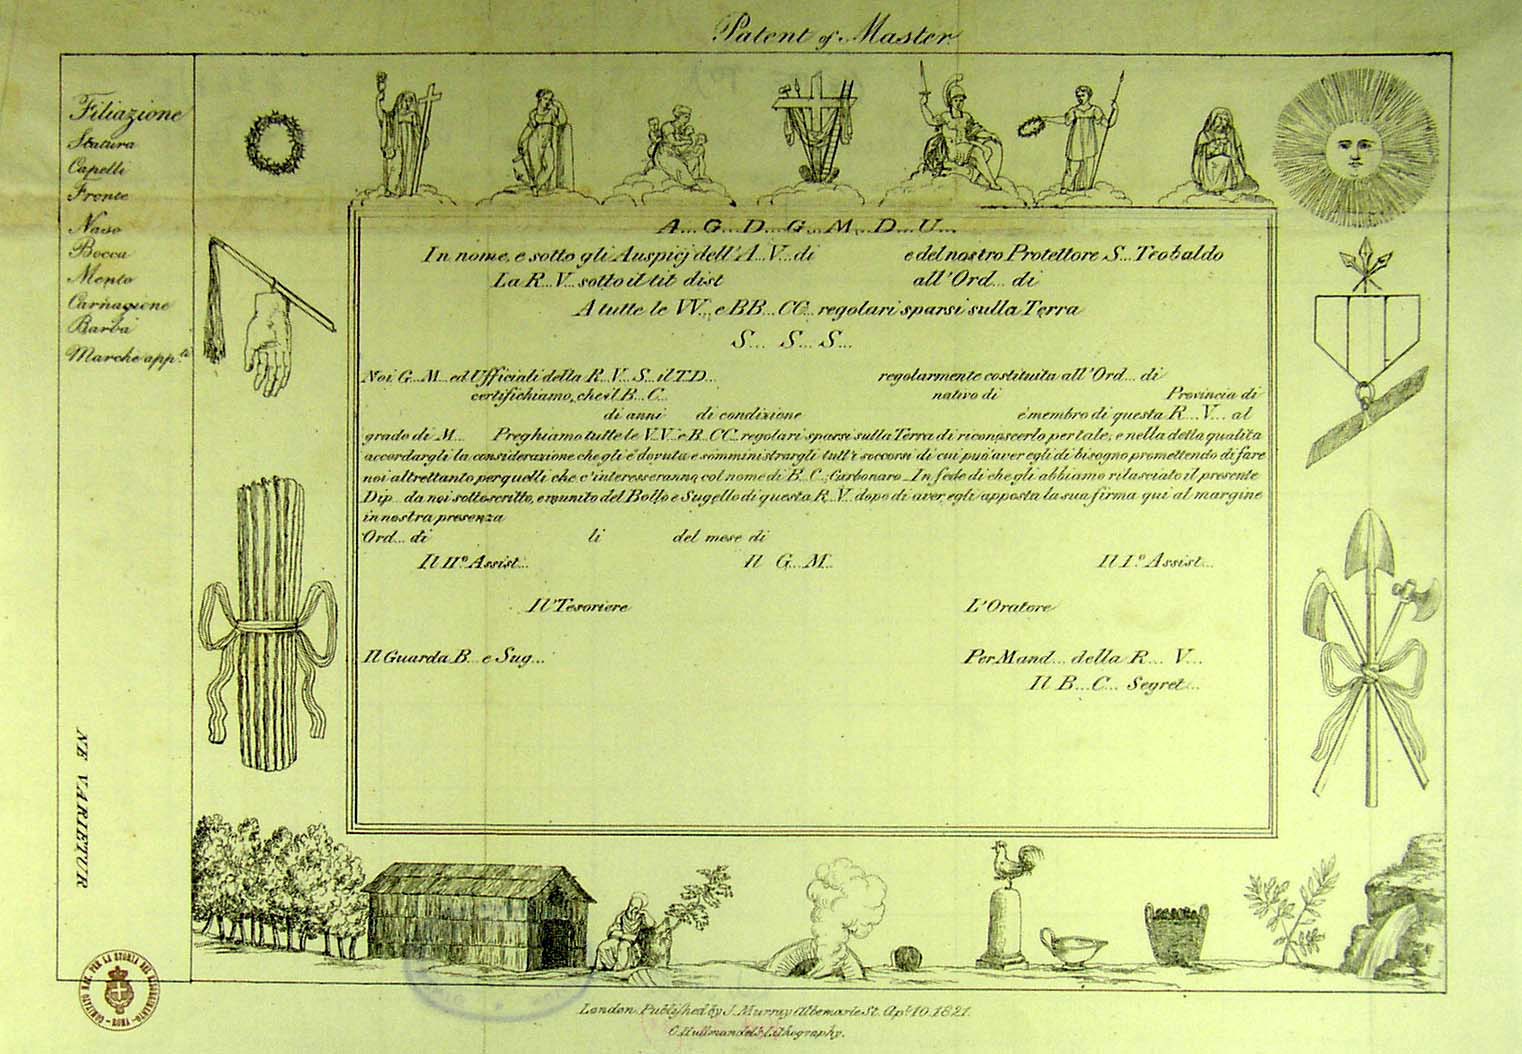 Patent of Master.
Filiazione
Statura
Capelli
Fronte
Naso
Bocca
Mento
Carnagione
Barba
Marche app.ti
NE VARIETUR
A... G... D... G... M... D... U...
In nome, e sotto gli Auspicj dell' A... V... di e del nostro Protettore S... Teobaldo
La R... V... sotto il tit dist all' Ord... di
A tutte le VV... e BB... CC... regolari sparsi sulla Terra
S... S... S...
Noi G... M... ed Ufficiali della R... V... S... il T.D... regolarmente costituita all' Ord... di
certifichiamo, che il B... C... nativo di Provincia di
di anni di condizione è membro di questa R... V... al
grado di M... Preghiamo tutte le V.V... e B... CC... regolari sparsi sulla Terra di riconoscerlo per tale, e nella detta qualita
accordargli la considerazione che gli è dovuta e somministrargli tutt'i soccorsi di cui può aver egli di bisogno promettendo di fare
noi altrettanto per quelli che c'interesseranno col nome di B... C... Carbonaro. In fede di che gli abbiamo rilasciato il presente
Dip... da noi sottoscritto, e munito del Bollo e Sugello di questa R... V... dopo di aver egli apposta la sua firma qui al margine
in nostra presenza
Ord... di li del mese di
Il IIo Assist... Il G... M... Il Io Assist...
Il Tesoriere L'Oratore
Il Guarda B... e Sug... Per Mand... della R... V...
Il B... C... Segret...
London. Published by J. Murray Albemarle St. Apl. 10. 1821.
C. Hullmandel's Lithography.
COMITATO NAZ. PER LA STORIA DEL RISORGIMENTO - ROMA